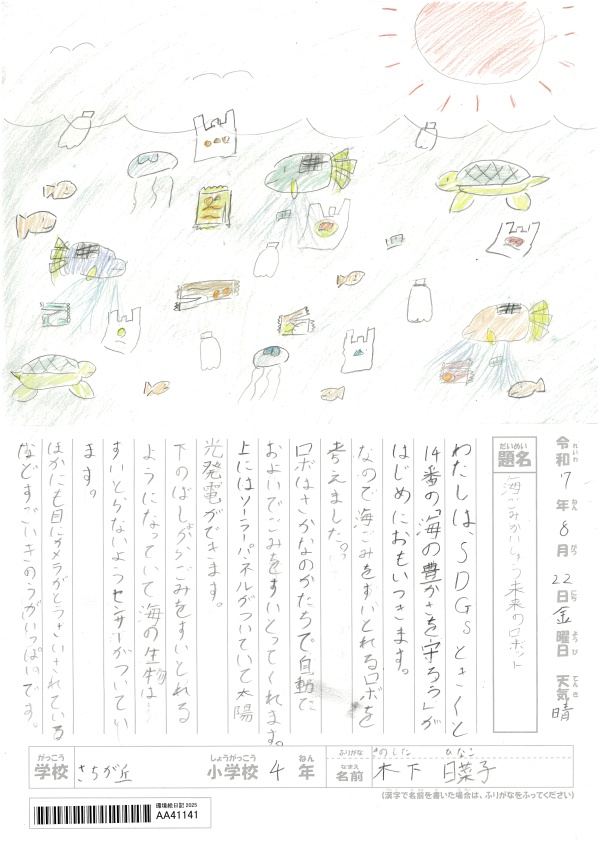 令和7年8月22日金曜日 天気 晴
れいわ ねん がつ にち ようび てんき
だいめい
題名 海ごみかいしゅう未来のロボット
わたしは、SDGsときくと
14番の「海の豊かさを守ろう」が
はじめにおもいつきます。
なので海ごみをすいとれるロボを
考えました。
ロボはさかなのかたちで自動で
およいでごみをすいとってくれます。
上にはソーラーパネルがついていて太陽
光発電ができます。
下のばしょからごみをすいとれる
ようになっていて海の生物は
すいとらないようセンサーがついてい
ます。
ほかにも目にカメラがとうさいされている
などすごいきのうがいっぱいです。
がっこう しょうがっこう ねん
学校 さちが丘 小学校 4年
ふりがな きのした ひなこ
なまえ
名前 木下 日菜子
(漢字で名前を書いた場合は、ふりがなをふってください)
環境絵日記 2025
AA41141